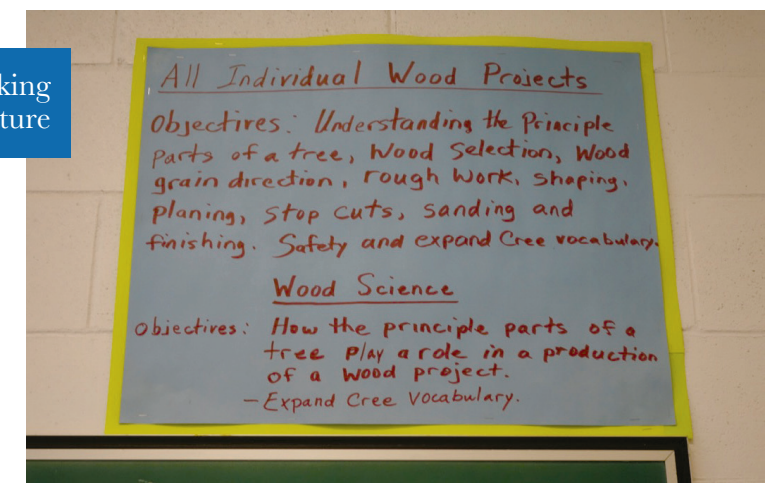 king
ture
All Individual Wood Projects
Objectives: Understanding the Principle
Parts of a tree, Wood Selection, Wood
grain direction, rough work, shaping,
planing, stop cuts, sanding and
finishing. Safety and expand Cree vocabulary.
Wood Science
Objectives: How the principle parts of a
tree play a role in a production
of a wood project.
- Expand Cree Vocabulary.